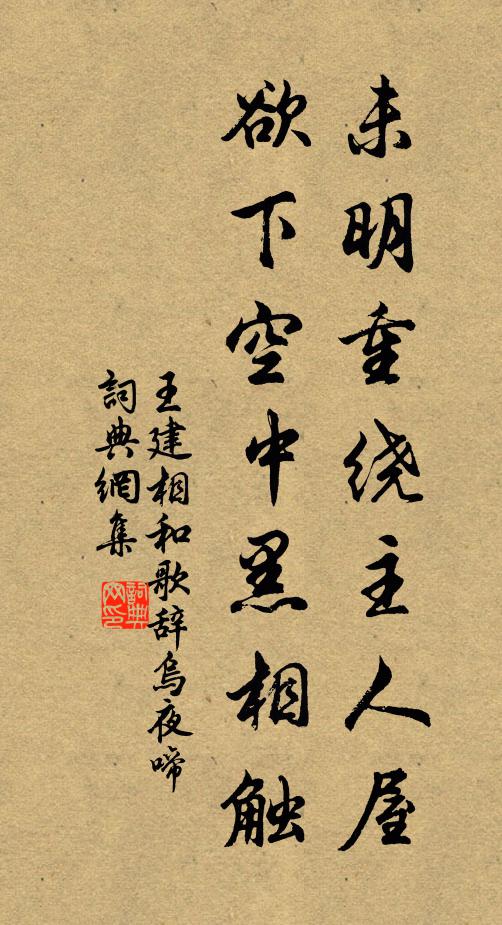 未明重绕主人屋
欲下空中黑相触
王建相和歌辞烏夜啼
詞典網集
詞典网印